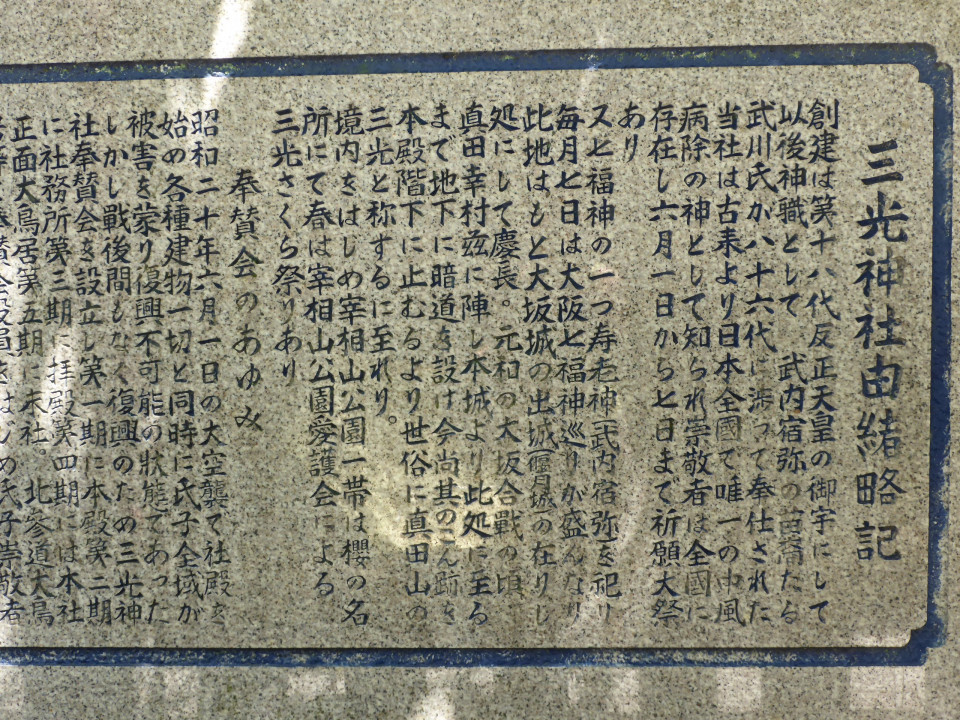 三光神社由緒略記
創建は第十八代反正天皇の御宇にして
以後神職として 武内宿弥の苗裔たる
武川氏が八十六代に渉って奉仕された
当社は古来より日本全國で唯一の中風
病除の神として知られ崇敬者は全國に
存在し六月一日から七日まで祈願大祭
あり
又七福神の一つ寿老神(武内宿弥)を祀り
毎月七日は大阪七福神巡りが盛んなり
此地はもと大坂城の出城(偃月城)の在りし
処にして慶長。元和の大坂合戰の頃
真田幸村茲に陣し本城より此処に至る
まで地下に暗道を設け今尚其のこん跡を
本殿階下に止むるより世俗に真田山の
三光と称するに至れり。
境内をはじめ宰相山公園一帯は櫻の名
所にて春は宰相山公園愛護会による
三光さくら祭りあり
奉賛会のあゆみ
昭和二十年六月一日の大空襲で社殿を
始め各種建物一切と同時に氏子全域が
被害を蒙り復興不可能の状態であった
しかし戰後間もなく復興のため三光神
社奉賛会を設立し第一期に本殿第二期
に社務所第三期に拝殿第四期には本社
正面大鳥居第五期に末社。北参道大鳥